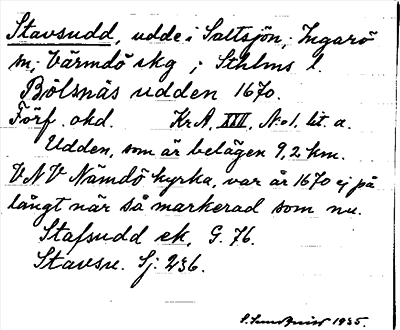 Stavsudd, udde i Saltsjön, Ingarö
sn, Värmdö skg; Sthlms l.
Bölsnäs udden 1670.
Förf. okd. Kr A, XXII, No 1, lit. a.
Udden, som är belägen 9,2 km.
V N V Nämdö kyrka, var år 1670 ej på
långt när så markerad som nu.
Stafsudd ek, G. 76.
Stavsu. Sj. 236.
1935.